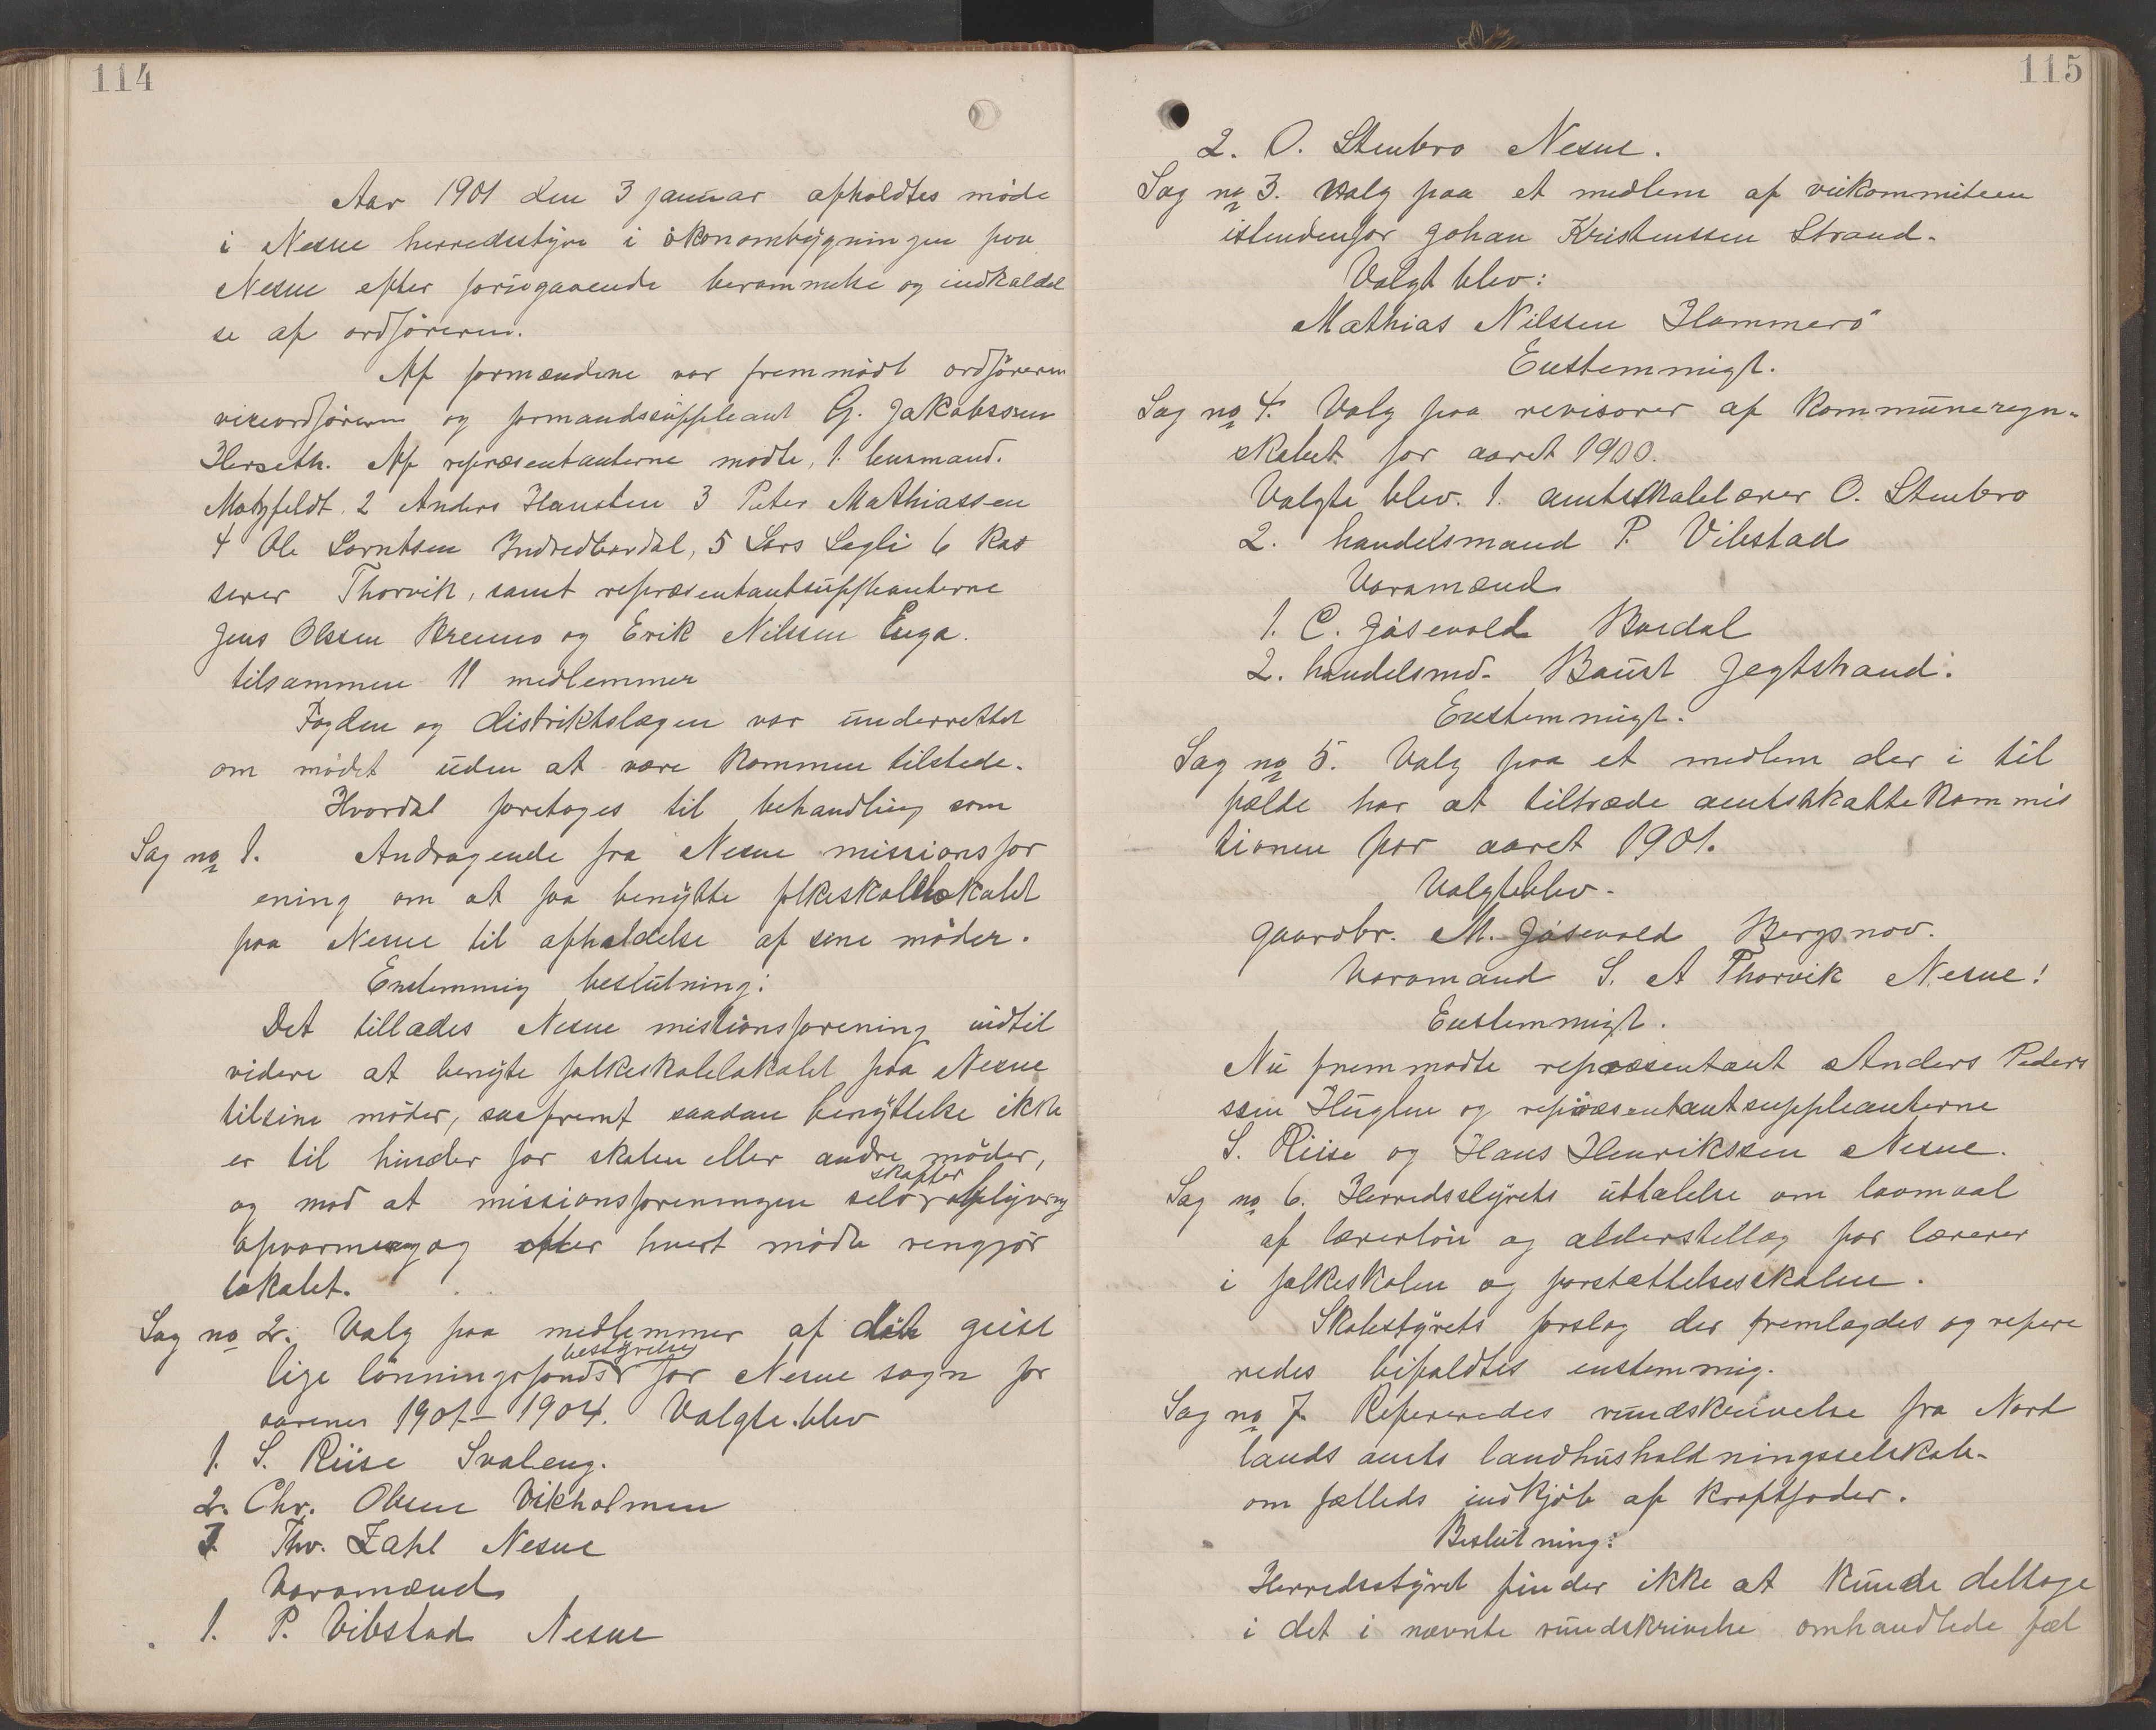 114
Aar 1901 den 3 januar afholdtes møde
i Nesne herredsstyre i økonombygningen paa
Nesne efter forudgaaende berammelse og indkaldel
se af ordføreren.
Af formændene var fremmødt ordføreren
viceordføreren og formandssuppleant G. Jakobssen
Herseth. Af repræsentanterne mødte, 1. lensmand.
Motzfeldt. 2 Anders Hansten 3 Peter Mathiassen
4 Ole Larntsen Indrebardal, 5 Lars Lagli 6 kas
serer Thorvik, samt repræsentantsuppleanterne
Jens Olssen Brenno og Erik Nilssen Enga.
tilsammen 11 medlemmer
Fogden og distriktslægen var underrettet
om mødet uden at være kommen tilstede.
Hvordal foretoges til behandling som
Sag no 1. Andragende fra Nesne missionsfor
ening om at faa benytte folkeskolelokalet
paa Nesne til afholdelse af sine møder.
Enstemmig beslutning:
Det tillades Nesne missionsforening indtil
videre at benyte folkeskolelokalet paa Nesne
til sine møder, saafremt saadan benyttelse ikke
er til hinder for skolen eller andre møder,
og mod at missionsforeningen selv skaffer oplysning
opvarmning og efter hvert møde rengjør
lokalet.
Sag no 2. Valg paa medlemmer af det geist
lige lønningsfonds bestyrelse for Nesne sogn for
aarene 1901–1904. Valgte blev
1. S. Riise Svaleng.
2. Chr. Olsen Vikholmen
3. Thv. Zahl Nesne
Varamænd
1. P. Vibstad Nesne
115
2. O. Stenbro Nesne.
Sag no 3. Valg paa et medlem af veikommiteen
istendenfor Johan Kristenssen Strand.
Valgt blev:
Mathias Nilssen Hammerö
Enstemmigt.
Sag no 4. Valg paa revisorer af kommuneregn-
skabet for aaret 1900.
Valgte blev. 1. amtskolelærer O. Stenbro
2. handelsmand P. Vibstad
Varamænd
1. C. Jøsevold Bardal
2. handelsmd. Baust Jegtstrand.
Enstemmigt.
Sag no 5. Valg paa et medlem der i til
fælde har at tiltræde amtsskattekommis
tionen for aaret 1901.
Valgt blev.
gaardbr. M. Jøsevold Bergsnov.
Varamand S. A Thorvik Nesne!
Enstemmigt.
Nu fremmødte repræsentant Anders Peders
ssen Huglen og repræsentantsuppleanterne
S. Riise og Hans Henrikssen Nesne.
Sag no 6. Herredsstyrets uttalelse om lavmaal
af lærerløn og alderstillæg for lærerer
i folkeskolen og forstættelsesskolen.
Skolestyrets forslag der fremlagdes og refere
redes bifaldtes enstemmig.
Sag no 7. Refereredes rundskrivelse fra Nord
lands amts landhusholdningsselskab.
om fælleds indkjøb af kraftfoder.
Beslutning:
Herredsstyret finder ikke at kunde deltage
i det i nævnte rundskrivelse omhandlede fæl